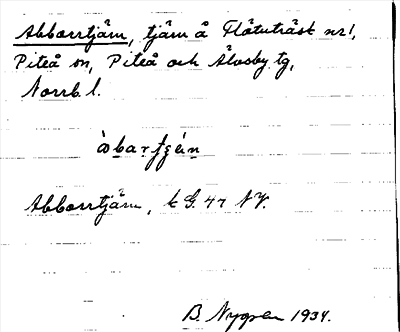 Abborrtjärn, tjärn å Flötuträsk nr 1,
Piteå sn, Piteå och Älvsby tg,
Norrb. l.
àbarʃʒɛ́n
Abborrtjärn, k G. 47 NV.
B. Nygren 1934.